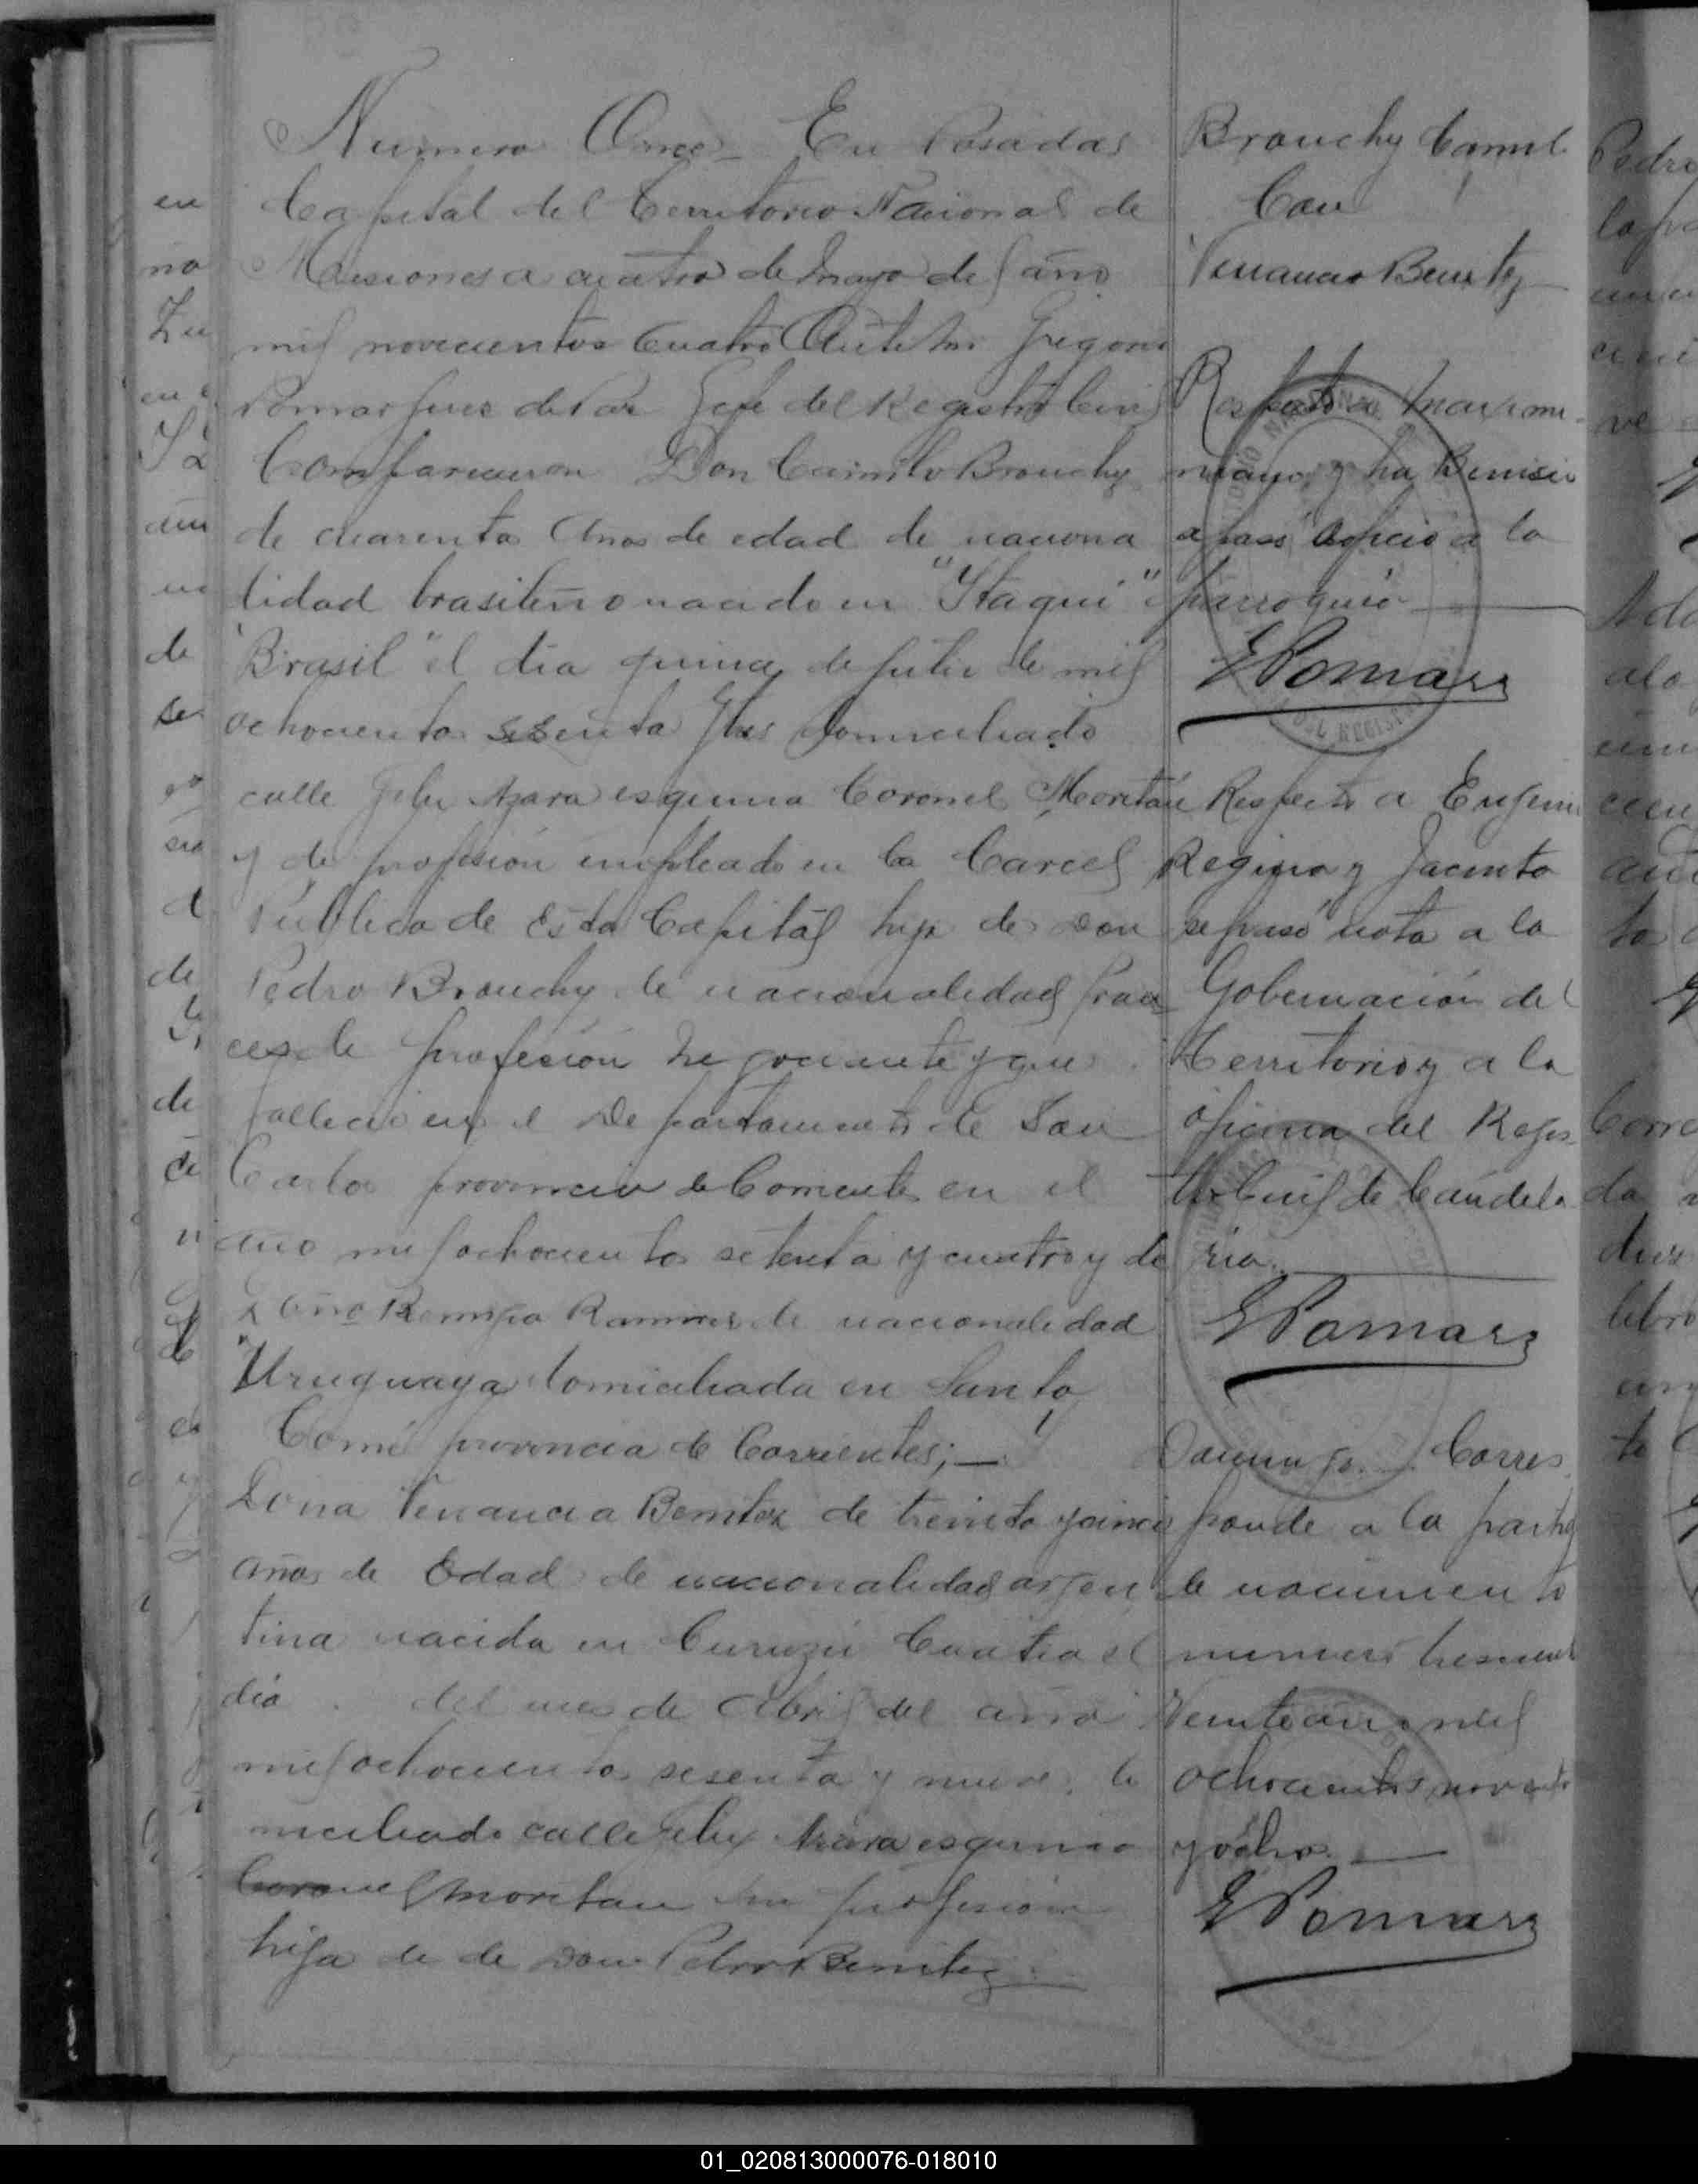 Numero Once_ En Posadas
Capital del Territorio Nacional de
Misiones a cuatro de Mayo del año
mil novecientos cuatro Ante mi Gregorio
Pomar Juez de Paz Gefe del Registro Civil
Comparecieron Don Camilo Brouchy
de cuarenta años de edad de naciona
lidad brasileño nacido en "Itaqui"
"Brasil" el dia quince de Julio de mil
ochocientos sesenta y tres domiciliado
calle Felix Azara esquina Coronel Moritán
y de profesión empleado en la Carcel
Publica de Esta Capital hijo de Don
Pedro Brouchy de nacionalidad fran
ces de profesión negociante y que
fallecio en el Departamento de San
Carlos provincia de Corrientes en el
año mil ochocientos setenta y cuatro y de
Doña Remigia Ramirez de nacionalidad
Uruguaya domiciliada en Santo
Tomé provincia de Corrientes;—
Dona Venancia Benitez de treinta y cinco
años de Edad de nacionalidad argen
tina nacida en Curuzú Cuatia el
dia del mes de Abril del año
mil ochocientos sesenta y nueve do
miciliada calle Felix Azara esquina
Coronel Moritan sin profesión
hija de de Don Pedro Benitez
Brouchy Camilo
Con
Venancia Benitez
Respecto a Maximi-
niano y ha
a la
parroquia
GPomar
Respecto a Eugenia
Regina y Jacinto
se pasó nota a la
Gobernación del
Territorio y a la
oficina del Regis-
tro Civil de Candela
ria.
GPomar
Corres
ponde a la partida
de nacimiento
numero
Veinte año mil
ochocientos noventa
y ocho.—
GPomar
01_020813000076-018010